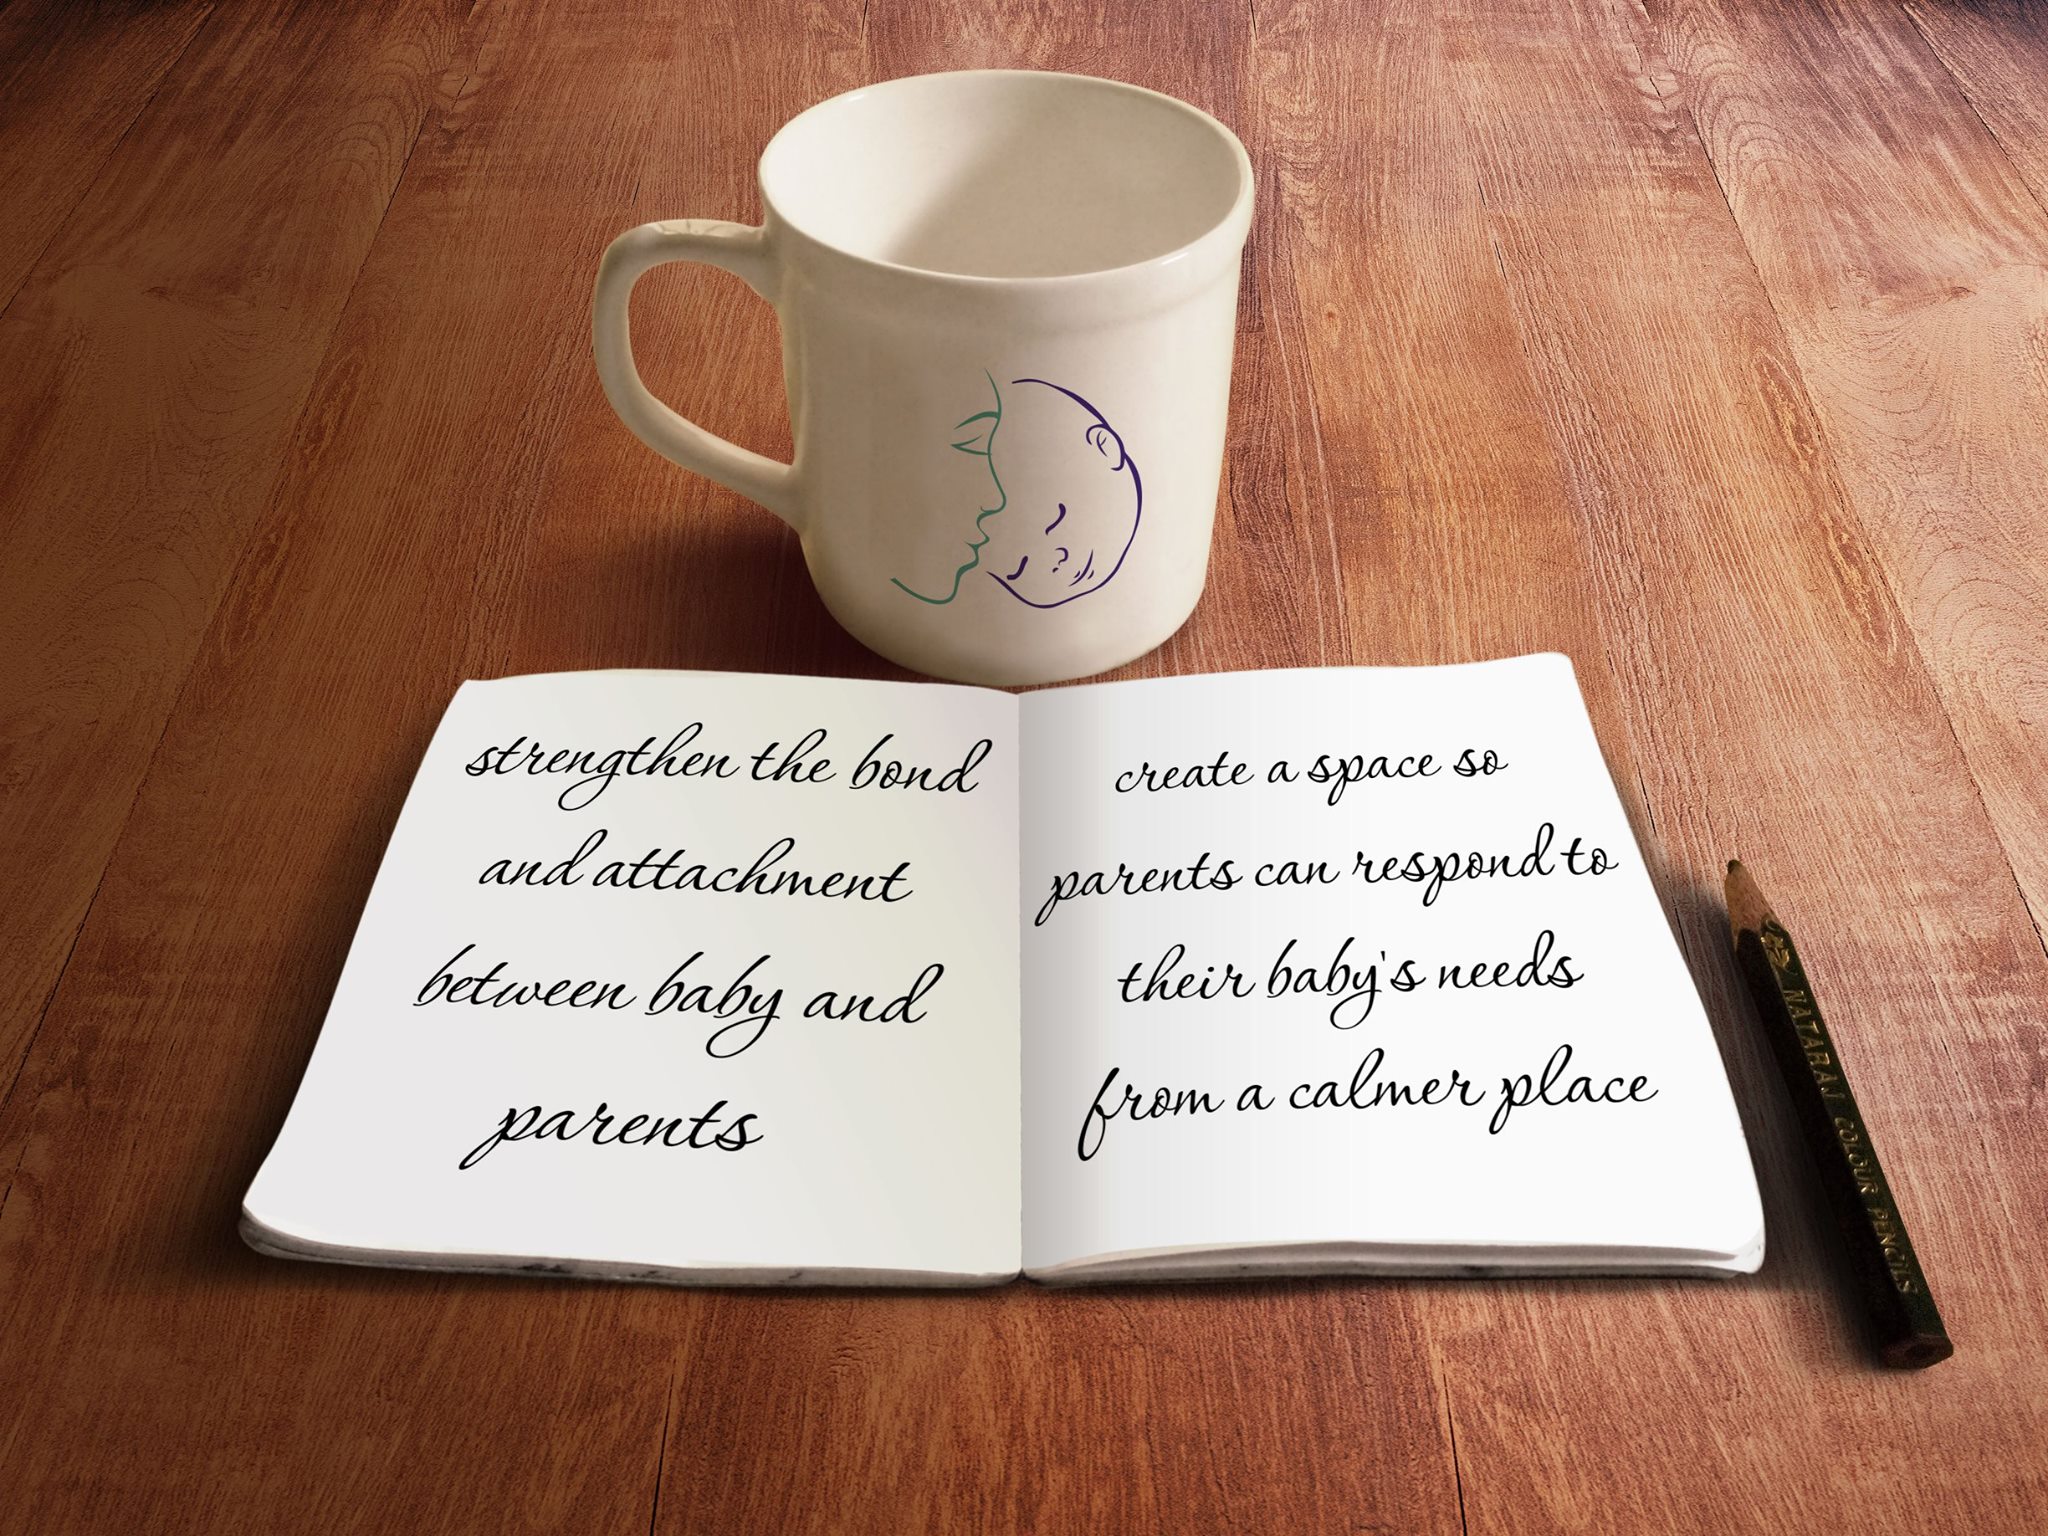 strengthen the bond
and attachment
between baby and
parents
create a space so
parents can respond to
their baby's needs
from a calmer place
NATARAJ COLOUR PENCILS